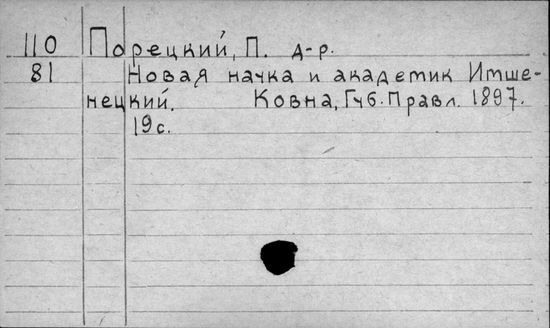 110 Порецкий, П. д-р.
81 Новая наука и академик Имше-
нецкий. Ковна, Губ. Правл. 1897.
19 с.